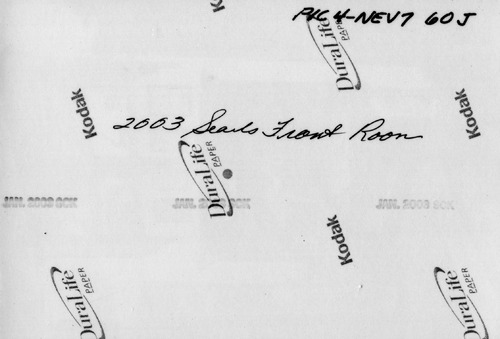 Kodak
PIC 4-NEV7 60J
DuraLife
PAPER
Kodak
Kodak
2003 Searls Front Room
DuraLife
PAPER
JAN. 2003 SCK
JAN. 2003 SCK
JAN. 2003 SCK
Kodak
DuraLife
PAPER
DuraLife
PAPER